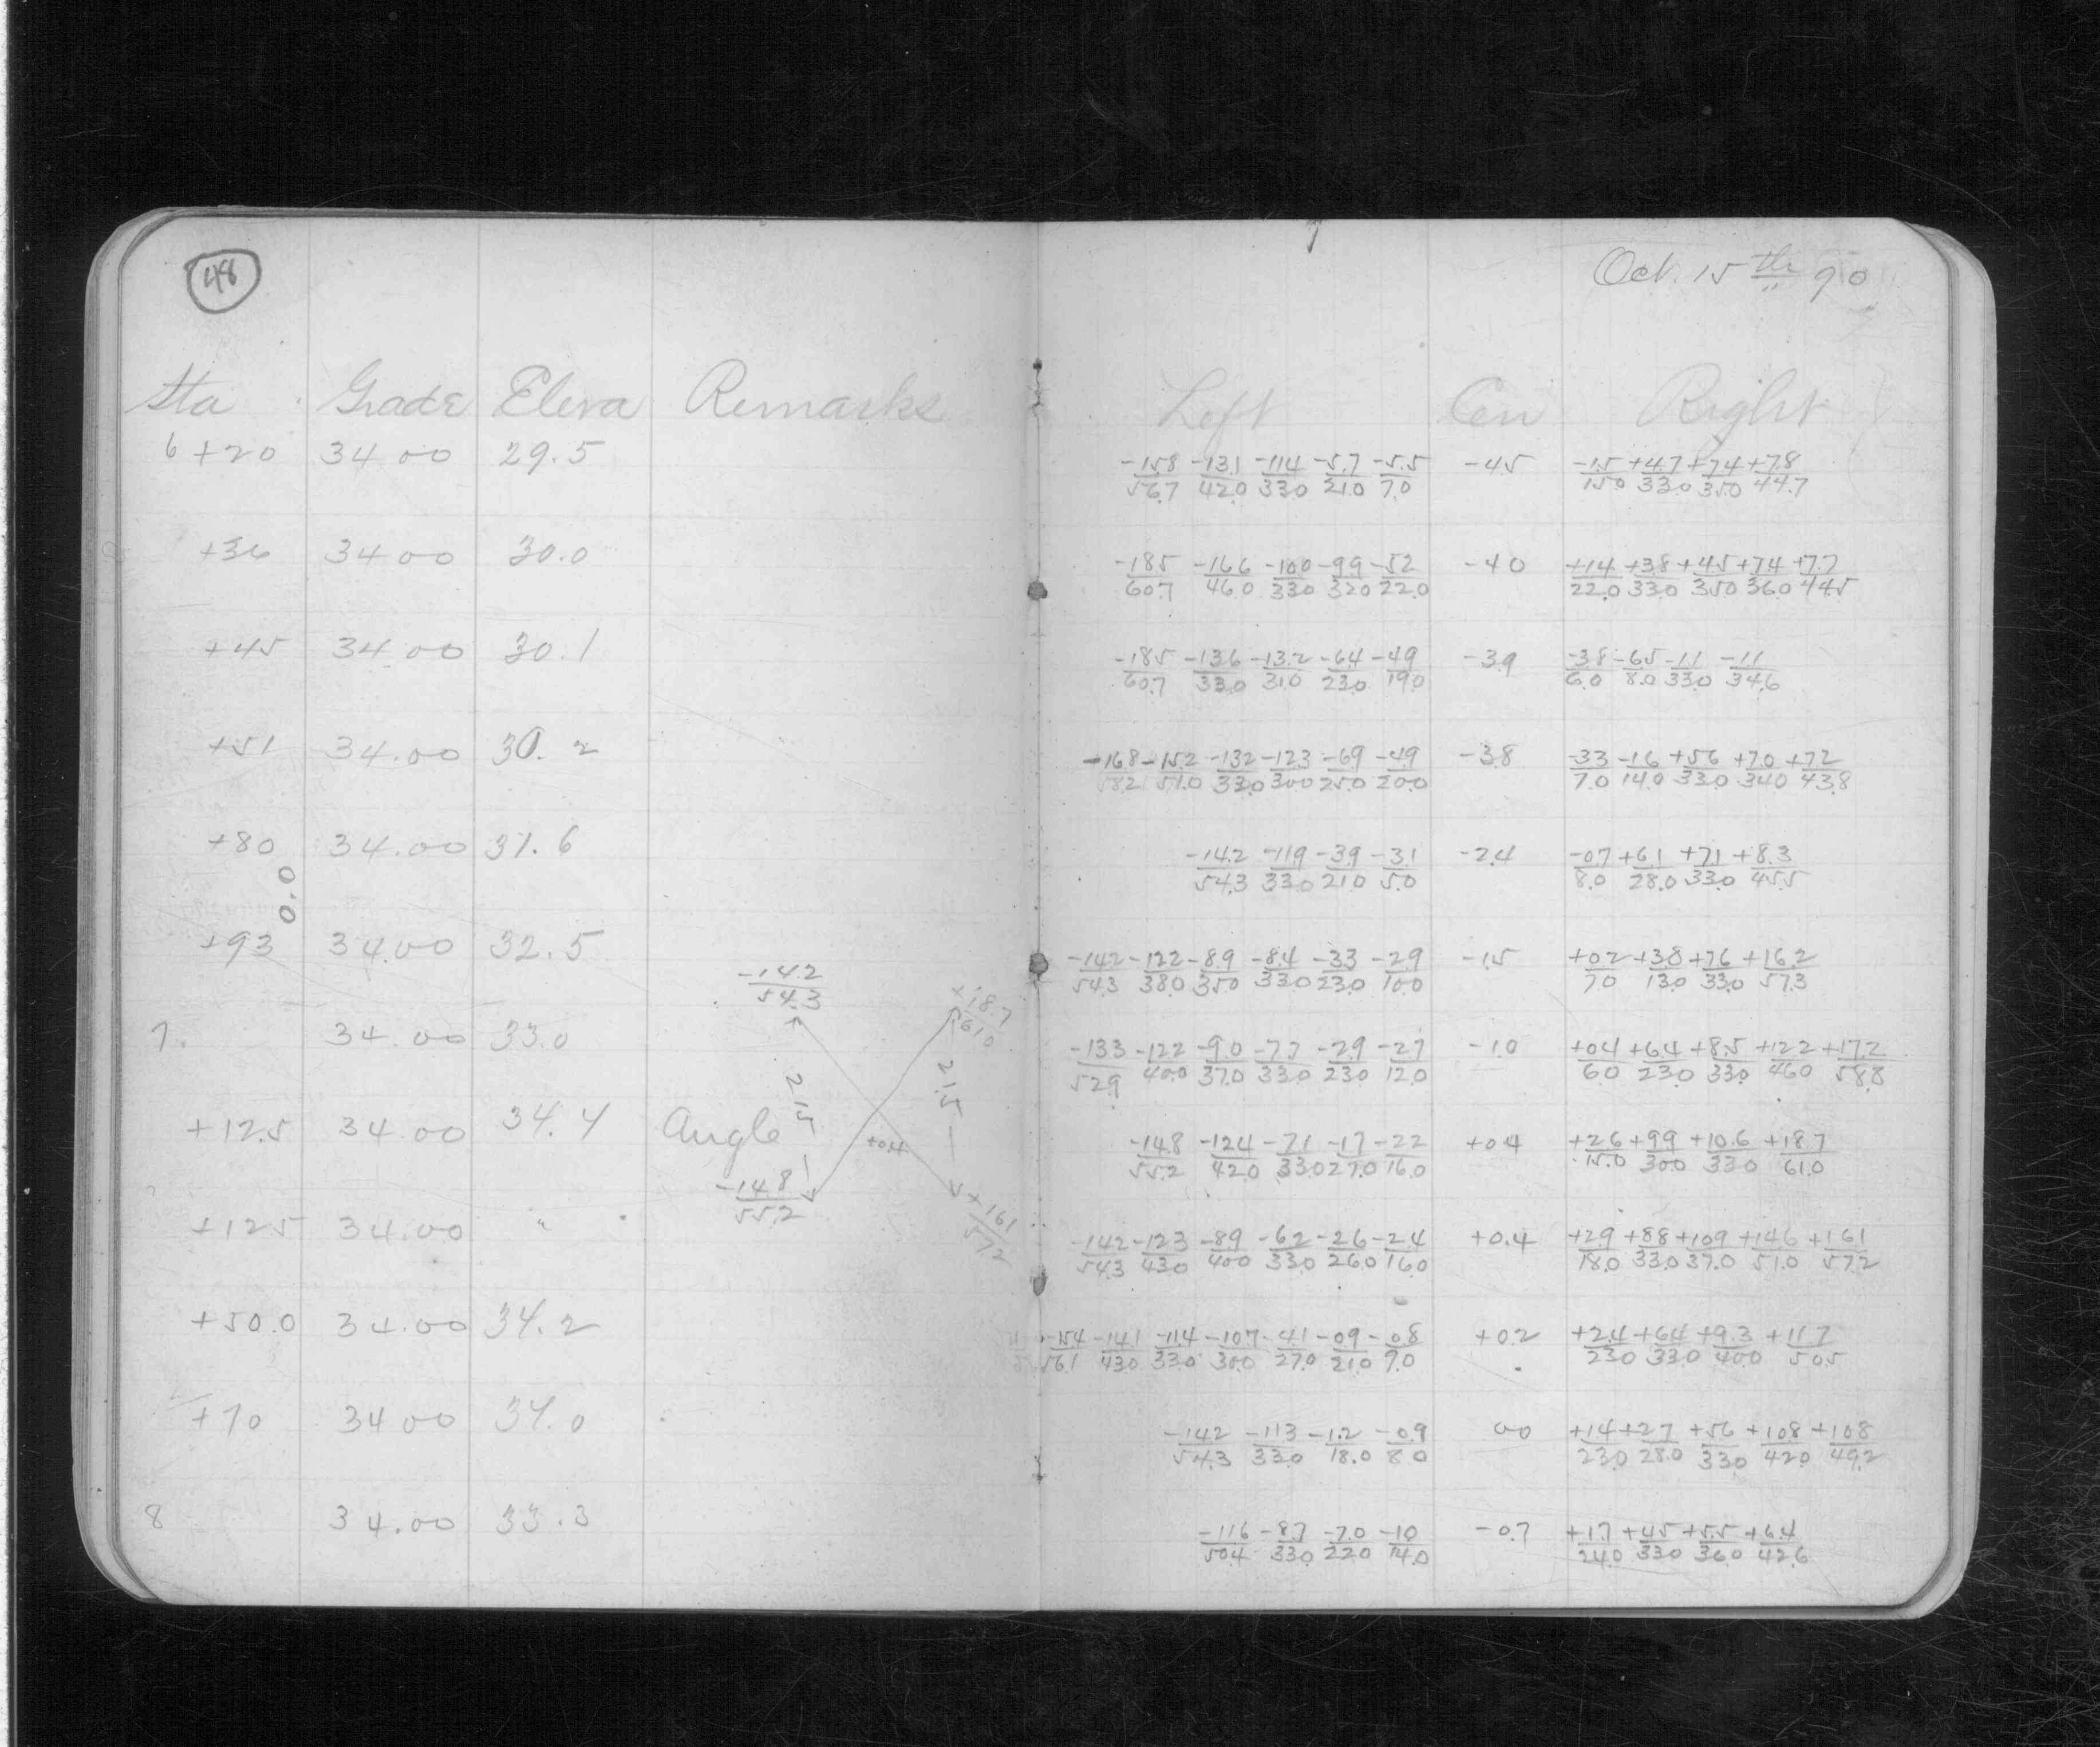 48
Oct. 15th 90
Sta Grade Eleva Remarks Left Cen Right
6+20 34 00 29.5 -15.8/56.7 -13.1/42.0 -11.4/33.0 -5.7/21.0 -5.5/7.0 -4.5 -1.5/15.0 +4.7/33.0 +7.4/35.0 +7.8/44.7
+36 34 00 30.0 -18.5/60.7 -16.6/46.0 -10.0/33.0 -9.9/32.0 -5.2/22.0 -4.0 +1.4/22.0 +3.8/33.0 +4.5/35.0 +7.4/36.0 +7.7/44.5
+45 34 00 30.1 -18.5/60.7 -13.6/33.0 -13.2/31.0 -6.4/23.0 -4.9/19.0 -3.9 -3.8/6.0 -6.5/8.0 -1.1/33.0 -1.1/34.6
+51 34.00 30.2 -16.8/58.2 -15.2/51.0 -13.2/33.0 -12.3/30.0 -6.9/25.0 -4.9/20.0 -3.8 -3.3/7.0 -1.6/14.0 +5.6/33.0 +7.0/34.0 +7.2/43.8
+80 34.00 31.6 -14.2/54.3 -11.9/33.0 -3.9/21.0 -3.1/5.0 -2.4 -0.7/8.0 +6.1/28.0 +7.1/33.0 +8.3/45.5
0.0
+93 34.00 32.5 -14.2/54.3 -12.2/38.0 -8.9/35.0 -8.4/33.0 -3.3/23.0 -2.9/10.0 -1.5 +0.2/7.0 +3.8/13.0 +7.6/33.0 +16.2/57.3
-14.2/54.3 +18.7/61.0
7. 34.00 33.0 -13.3/52.9 -12.2/40.0 -9.0/37.0 -7.7/33.0 -2.9/23.0 -2.7/12.0 -1.0 +0.4/6.0 +6.4/23.0 +8.5/33.0 +12.2/46.0 +17.2/58.8
21.5 21.5
+12.5 34.00 34.4 Angle +0.4 -14.8/55.2 -12.4/42.0 -7.1/33.0 -1.7/27.0 -2.2/16.0 +0.4 +2.6/15.0 +9.9/30.0 +10.6/33.0 +18.7/61.0
-14.8/55.2 +16.1/57.2
+12.5 34.00 " -14.2/54.3 -12.3/43.0 -8.9/40.0 -6.2/33.0 -2.6/26.0 -2.4/16.0 +0.4 +2.9/18.0 +8.8/33.0 +10.9/37.0 +14.6/51.0 +16.1/57.2
+50.0 34.00 34.2 -15.4/56.1 -14.1/43.0 -11.4/33.0 -10.7/30.0 -4.1/27.0 -0.9/21.0 -0.8/9.0 +0.2 +2.4/23.0 +6.4/33.0 +9.3/40.0 +11.7/50.5
+70 34 00 34.0 -14.2/54.3 -11.3/33.0 -1.2/18.0 -0.9/8.0 00 +1.4/23.0 +2.7/28.0 +5.6/33.0 +10.8/42.0 +10.8/49.2
8 34.00 33.3 -11.6/50.4 -8.7/33.0 -7.0/22.0 -1.0/14.0 -0.7 +1.7/24.0 +4.5/33.0 +5.5/36.0 +6.4/42.6